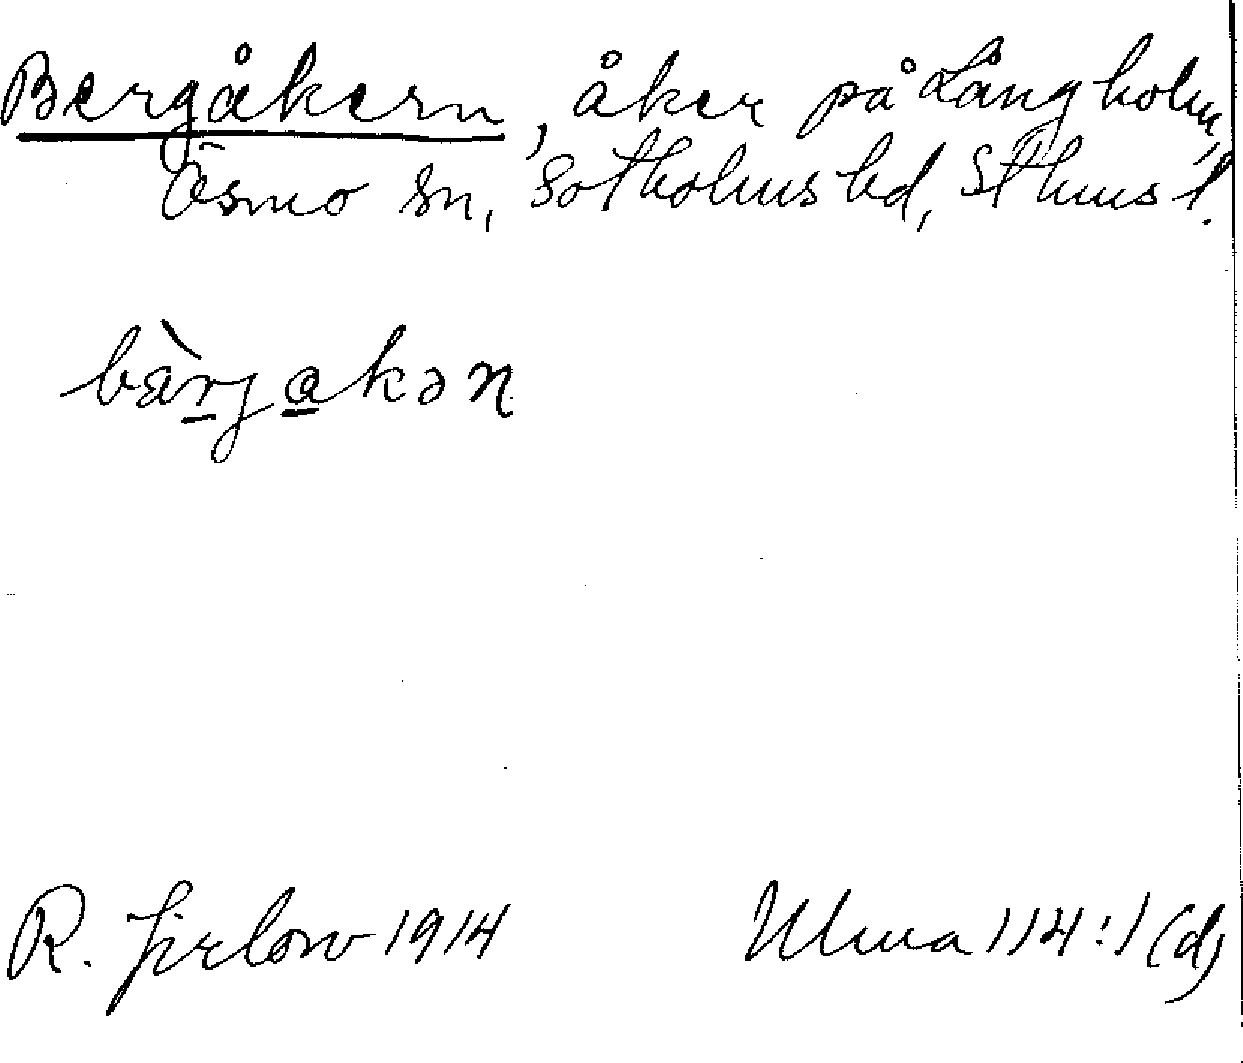 Bergåkern, åker på Långholm,
Ösmo sn, Sotholms hd, Sthms l.
bæ̀rj̱a̱kən
R. Jirlow 1914 Ulma 114:1 (d)